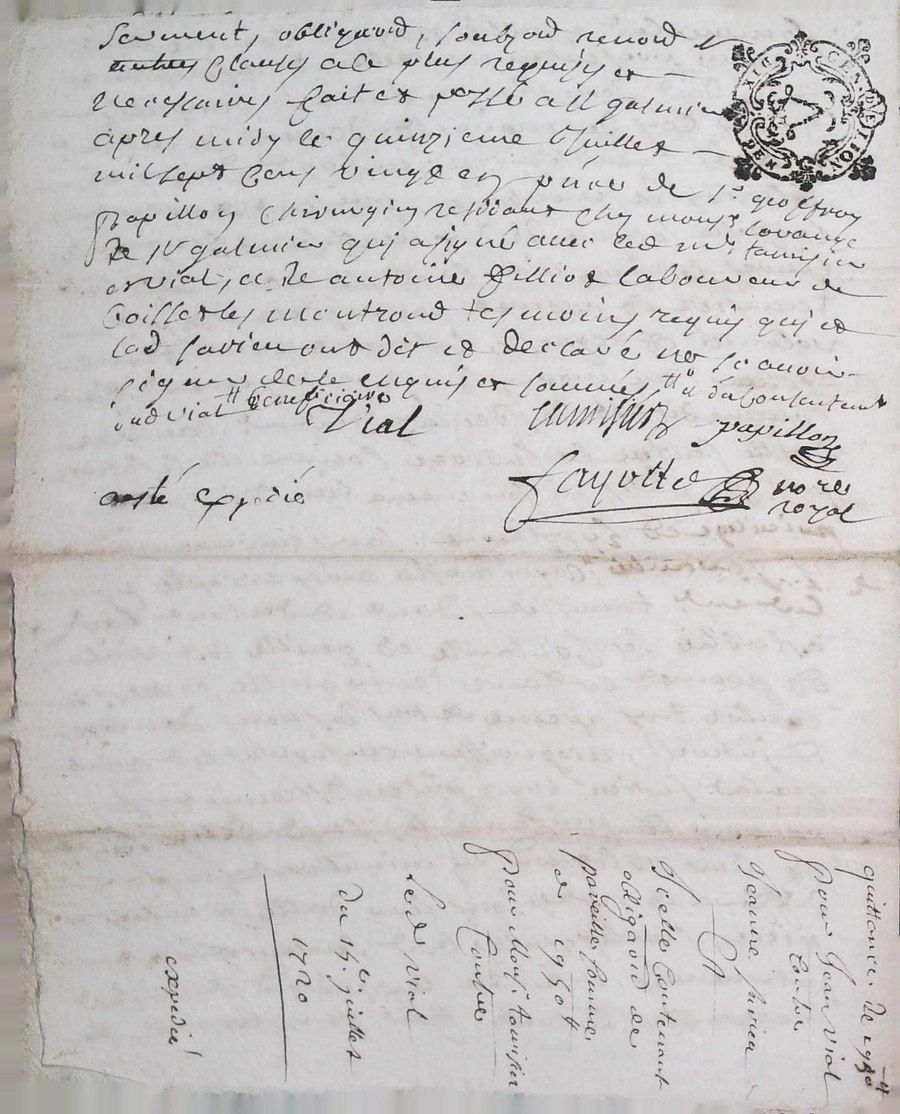 serment, obligaõn, soubzõn, renoõn
autres clauses a ce plus requises et
necessaires fait et passé a St galmier
apres midy le quinzieme Juillet
mil sept cens vingt en pñce de sr. geoffroy
papillon chirurgien residant chez mons. lovange
de st galmier qui a signé avec led mr. tamisier
et vial, et de antoine filliot laboureur de
Boisset les montrond tesmoins requis qui et
lad favier ont dit et declaré ne scavoir
signer de ce enquis et sommés,
lad vial
Vial tamisier papillon
fayolle nore
royal
expedié
quittance de
pour Jean vial
Contre
Jeanne favier
Et
Icelle Contenant
obligaõn de
pareille somme
de
pour Monsr. tamisier
Contre
led vial
du 15e. juillet
1720
expedié
GEN. D'ETION
DIX DEN